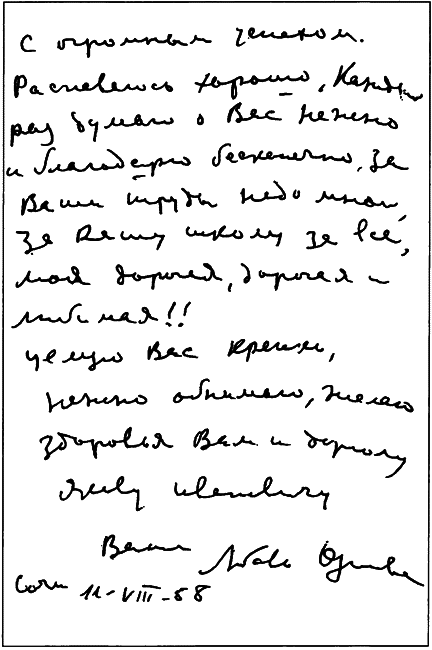 с огромным успехом.
Распеваюсь хорошо, Каждый
раз думаю о Вас нежно
и благодарно бесконечно, за
Ваши труды надо мной,
за Вашу школу за всё,
моя дорогая, дорогая и
любимая!!
целую Вас крепко,
нежно обнимаю, желаю
здоровья Вам и дорогому
Ивановичу
Ваша
Сочи 11-VIII-58